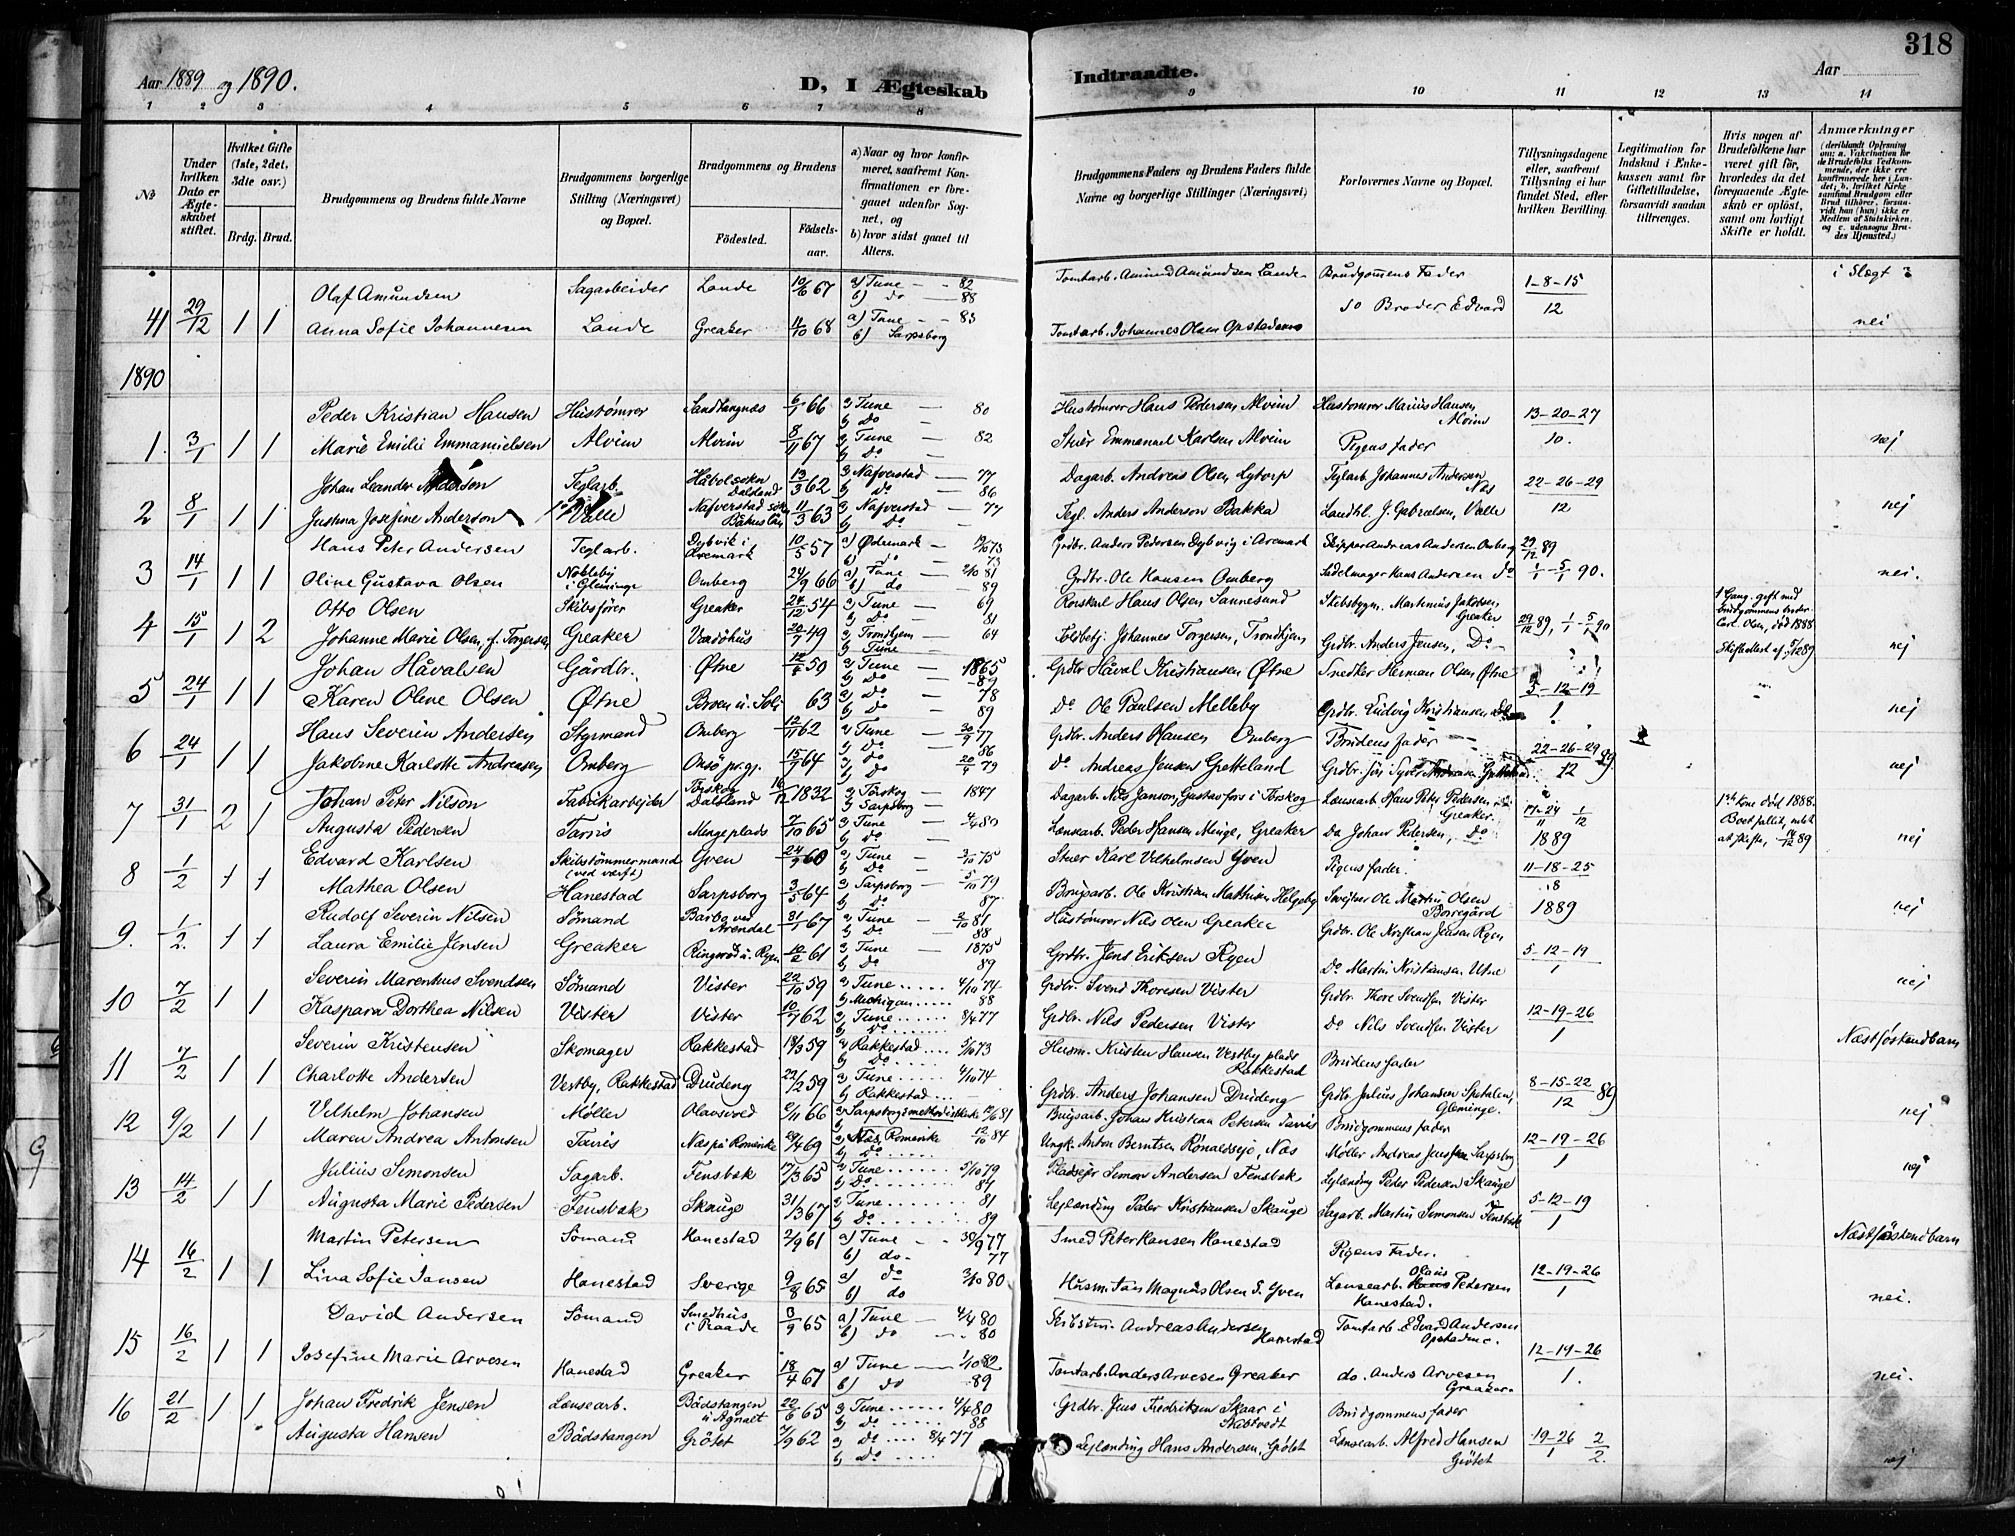 318
Aar 1889 og 1890.
D, I Ægteskab
Indtraadte.
Aar
1 2 3 4 5 6 7 8 9 10 11 12 13 14
No
Under hvilken Dato er Ægteskabet stiftet.
Hvilket Gifte (1ste, 2det, 3die osv.)
Brdg. Brud.
Brudgommens og Brudens fulde Navne
Brudgommens borgerlige Stilling (Næringsvei) og Bopæl.
Brudgommens og Brudens
Fødested.
Fødselsaar.
a) Naar og hvor konfirmeret, saafremt Konfirmationen er foregaaet udenfor Sognet, og
b) hvor sidst gaaet til Alters.
Brudgommens Faders og Brudens Faders fulde Navne og borgerlige Stillinger (Næringsvei)
Forlovernes Navne og Bopæl.
Tillysningsdagene eller, saafremt Tillysning ei har fundet Sted, efter hvilken Bevilling.
Legitimation for Indskud i Enkekassen samt for Giftetilladelse, forsaavidt saadan tiltrænges.
Hvis nogen af Brudefolkene har været gift før, hvorledes da det foregaaende Ægteskab er opløst, samt om lovligt Skifte er holdt.
Anmærkninger (deriblandt Oplysning om: a. Vakcination for de Brudefolks Vedkommende, der ikke ere konfirmerede her i Landet; b. hvilket Kirkesamfund Brudgom eller Brud tilhører, forsaavidt han (hun) ikke er Medlem af Statskirken, og c. udensogns Brudes Hjemsted.)
Olaf Amundsen Sagarbeider Lande 10/6 67 a) Tune 82 b) do 88 Tomtarb. Amund Amundsen Lande Brudgommens Fader 1-8-15 i Slægt ?
41 29/12 1 1 Anna Sofie Johannesen Lande Greaker 4/10 68 a) Tune 83 b) Sarpsborg Tomtarb. Johannes Olsen Opstadens Broder Edvard 12 nei
1890
Peder Kristian Hansen Hustømrer Sandtangnes 6/1 66 a) Tune 80 b) Do Hustømrer Hans Pedersen Alvim Hustømrer Marius Hansen Alvim 13-20-27
1. 3/1 1 1 Marie Emilie Emmanuelsen Alvim Alvim 8/11 67 a) Tune 82 b) Do Stuer Emmanuel Karlsen Alvim Pigens fader 10. nej
Johan Leander Anderson Teglarb. Håbolsokn Dalsland 13/3 62 a) Nafverstad 77 b) Do 86 Dagarb. Andreas Olsen Lytorp Teglarb. Johannes Andersen Näs 22-26-29
2 8/1 1 1 Justina Josefine Anderson Valle Nafverstad sokn Båhus län 11/3 63 a) Nafverstad 77 b) Do Tegl. Anders Anderson Bakka Landhl. J. Gabrielsen, Valle 12 nej
Hans Peter Andersen Teglarb. Dybvik i Aremark 10/5 57 a) Ødemark 73 b) do 73 Grdbr. Anders Pedersen Dybvig i Aremark Skipper Andreas Andersen Omberg 29/12 89
3 14/1 1 1 Oline Gustava Olsen Nobleby i Glemminge Omberg 24/9 66 a) Tune 2/10 81 b) do 89 Grdbr. Ole Hansen Omberg Sadelmager Hans Andersen do 1/1 - 5/1 90. nei.
Otto Olsen Skibsfører Greaker 24/12 54 a) Tune 69 b) Do 81 Rorskarl Hans Olsen Sannesund Skibsbygm. Martinius Jakobsen Greaker 1 Gang gift med brudgommens broder Carl Olsen, død 1888
4 15/1 1 2 Johanne Marie Olsen f. Torgersen Greaker Vardøhus 20/7 49 a) Trondhjem 64 b) Tune Toldbetj. Johannes Torgersen, Trondhjem Grdbr. Anders Jensen, Do 29/12 89, 1/1 - 5/1 90 Skifteattest af 5/12 89 nej
Johan Håvalsen Gårdbr. Øtne 12/6 50 a) Tune 1865 b) Do 89 Grdbr Håval Kristiansen Øtne Snedker Herman Olsen Øtne
5 24/1 1 1 Karen Oline Olsen Øtne Broen u. Soli 63 a) do 78 b) do 89 Do Ole Paulsen Melleby Grdbr. Ludvig Kristiansen Do 5-12-19 1 nej
Hans Severin Andersen Styrmand Omberg 12/11 62 a) Tune 30/9 77 b) Do 86 Grdbr. Anders Hansen Omberg Brudens fader 22-26-29 89
6 24/1 1 1 Jakobine Karlotte Andreasen Omberg Onsø prgj. 15/7 64 a) do 20/4 79 b) Do Do Andreas Jensen Gretteland 12 nej
Johan Peter Nilson Fabrikarbejder Torskog Dalsland 16/12 1832 a) Torskog 1847 b) Sarpsborg Dagarb. Nils Janson, Gustafsfors i Torskog Lænsearb. Hans Peter Pedersen Greaker. 17-24/11 1/12 1ste kone død 1888.
7 31/1 2 1 Augusta Pedersen Tarris Mingeplads 7/10 65 a) Tune 4/4 80 b) Do Lænsearb. Peder Hansen Minge, Greaker Do Johan Pedersen, Do 1889 Boet fallit, intet at skifte, 14/12 89 nej
Edvard Karlsen Skibstømmermand (ved værft) Yven 24/9 60 a) Tune 3/10 75 b) Do Stuer Karl Vilhelmsen Yven Pigens fader. 11-18-25
8 1/2 1 1 Mathea Olsen Hanestad Sarpsborg 3/5 64 a) Sarpsborg 5/10 79 b) Do 87 Brugsarb. Ole Kristian Mathisen Helgeby Svejtser Ole Martin Olsen Borregård 8 1889 nej
Rudolf Severin Nilsen Sömand Barbo ved Arendal 31/1 67 a) Tune 2/10 81 b) Do 88 Hustømrer Nils Olsen Greaker Grdbr. Ole Kristian Jensen Ryen
9. 1/2. 1 1 Laura Emilie Jensen Greaker Ringerød u. Ryen 12/2 61 a) Tune 1875 b) Do 89 Grdbr. Jens Eriksen Ryen Do Martin Kristiansen Utne 5-12-19 1 nej
Severin Marenthus Svendsen Sömand Vister 22/10 59 a) Tune 4/10 74 b) Michigan 88 Grdbr. Svend Thoresen Vister Grdbr. Thore Svendsen Vister
10 7/2 1 1 Kaspara Dorthea Nilsen Vister Vister 10/7 62 a) Tune 8/4 77 b) Do Grdbr. Nils Pedersen Vister Do Nils Svendsen Vister 12-19-26 1 Næstsøskendbarn
Severin Kristensen Skomager Rakkestad 18/3 59 a) Rakkestad 5/10 73 b) Do Husm. Kristen Hansen Vestby plads Rakkestad Brudens fader
11 7/2 1 1 Charlotte Andersen Vestby, Rakkestad Drudeng 22/2 59 a) Tune 4/10 74 b) Rakkestad Grdbr. Anders Johansen Drudeng Grdbr. Julius Johansen Spetalen, Gleminge. 8-15-22 12 89 nej
Vilhelm Johansen Møller Olavsved 6/11 66 a) Sarpsborgs methodistkirke 12/6 81 Brugsarb. Johan Kristian Petersen Tarris Brudgommens fader
12 9/2 1 1 Maren Andrea Antonsen Tarris Næs på Romerike 29/4 69 a) Næs, Romerike 12/10 84 b) Do Ungk. Anton Berntsen Rönaldsejo, Næs Møller Andreas Jensen Sarpsborg 12-19-26 1 nej
Julius Simonsen Sagarb. Fensbak 7/3 65 a) Tune 5/10 79 b) Do 84 Pladsejer Simon Andersen Fensbak Leylænding Peder Pedersen Skauge
13 14/2 1 1 Augusta Marie Pedersen Fensbak Skauge 31/3 67 a) Tune 81 b) Do 89 Leylænding Peder Kristiansen Skauge Sagarb. Martin Simonsen Fensbak 5-12-19 1
Martin Petersen Sömand Hanestad 2/9 61 a) Tune 30/9 77 b) do 77 Smed Peter Hansen Hanestad Pigens Fader. Næstsøskendbarn
14 16/2 1 1 Lina Sofie Jansen Hanestad Sverige 9/8 65 a) do 3/10 80 b) do Husm. Jan Magnus Olsen S. Yven Lænsearb. Hans Olaus Petersen Hanestad. 12-19-26 1 nei.
David Andersen Sömand Smedhus i Raade 3/9 65 a) Tune 4/4 80 b) do 80 Skibstm. Andreas Andersen Hanestad Tomtarb. Edvard Andersen Opstadens.
15 16/2 1 1 Josefine Marie Arvesen Hanestad Greaker 18/4 67 a) Tune 1/10 82 b) do 89 Tomtarb. Anders Arvesen Greaker do. Anders Arvesen Greaker. 12-19-26 1. nei.
16 21/2 1 1 Johan Fredrik Jensen Lænsearb. Bådstangen u. Agnalt 22/6 65 a) Tune 4/4 80 b) do 88 Grdbr. Jens Fredriksen Skaar i Skibtvedt Brudgommens fader
Augusta Hansen Bådstangen Grötet 7/9 62 a) Do 8/4 77 b) Do Leylænding Hans Andersen, Grötet Lænsearb. Alfred Hansen Grötet 19-26 1 2/2. nej